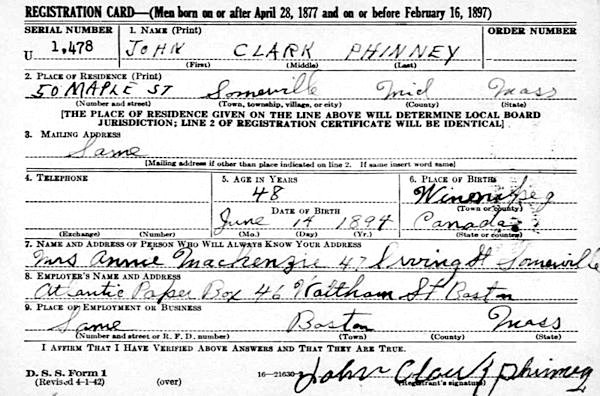 REGISTRATION CARD—(Men born on or after April 28, 1877 and on or before February 16, 1897)
SERIAL NUMBER 1. NAME (Print) ORDER NUMBER
U 1,478 JOHN CLARK PHINNEY
(First) (Middle) (Last)
2. PLACE OF RESIDENCE (Print)
50 MAPLE ST Somerville Mid Mass
(Number and street) (Town, township, village, or city) (County) (State)
[THE PLACE OF RESIDENCE GIVEN ON THE LINE ABOVE WILL DETERMINE LOCAL BOARD
JURISDICTION; LINE 2 OF REGISTRATION CERTIFICATE WILL BE IDENTICAL]
3. MAILING ADDRESS
Same
[Mailing address if other than place indicated on line 2. If same insert word same]
4. TELEPHONE 5. AGE IN YEARS 6. PLACE OF BIRTH
48 Winnipeg
DATE OF BIRTH (Town or county)
June 14 1894 Canada
(Exchange) (Number) (Mo.) (Day) (Yr.) (State or country)
7. NAME AND ADDRESS OF PERSON WHO WILL ALWAYS KNOW YOUR ADDRESS
Mrs Annie Mackenzie 47 Irving St Somerville
8. EMPLOYER'S NAME AND ADDRESS
Atlantic Paper Box 46 Waltham St Boston
9. PLACE OF EMPLOYMENT OR BUSINESS
Same Boston Mass
(Number and street or R. F. D. number) (Town) (County) (State)
I AFFIRM THAT I HAVE VERIFIED ABOVE ANSWERS AND THAT THEY ARE TRUE.
D. S. S. Form 1
(Revised 4-1-42) (over) 16—21630 John Clark Phinney
(Registrant's signature)